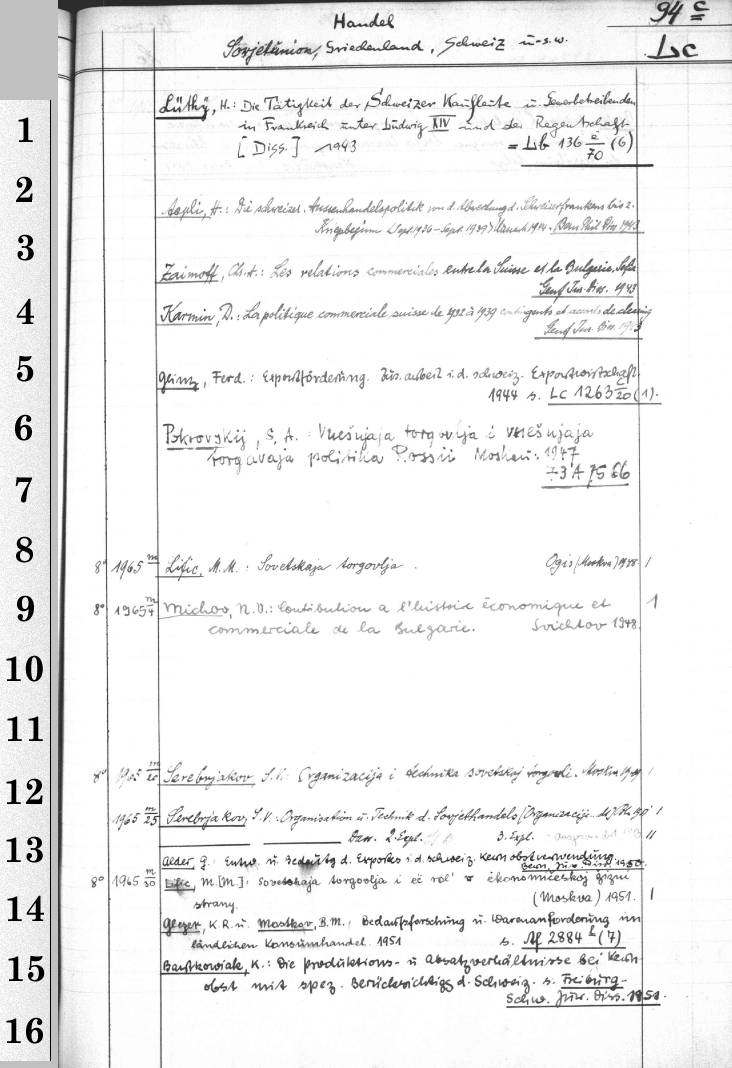 Handel
94 c
Sovjetunion, Griechenland, Schweiz u.s.w.
Lc
1
2
3
4
5
6
7
8
9
10
11
12
13
14
15
16
Lüthy, H.: Die Tätigkeit der Schweizer Kaufleute u. Gewerbetreibenden
in Frankreich unter Ludwig XIV und der Regentschaft
[Diss.] 1943 = Lb 136 e/70 (6)
Aepli, H.: Die schweizer. Aussenhandelspolitik von d. Abwertung d. Schweizerfrankens bis z.
Kriegsbeginn (Sept. 1936 - Sept. 1939) 1944. Bern Phil Diss 1943
Zaimoff, Ch. A.: Les relations commerciales entre la Suisse et la Bulgarie. Sofia
Genf Jur. Diss. 1943
Karmin, D.: La politique commerciale suisse de 1932 à 1939 contingents et accords de clearing
Genf Jur. Diss. 1943
Glinz, Ferd.: Exportförderung. Zus. arbeit i. d. schweiz. Exportwirtschaft.
1944 s. Lc 1263 c/20 (1).
Pokrovskij, S. A. Vnešnjaja torgovlja i vnešnjaja
torgovaja politika Rossii Moskau: 1947
73 A 7566
8° 1965 m Lific, M. M.: Sovetskaja torgovlja. Ogis (Moskva) 1948. 1
8° 1965 m/4 Michov, N. V.: Contribution a l'histoire économique et 1
commerciale de la Bulgarie. Svichtov 1948.
8° 1965 m/20 Serebrjakov, S. V. Organizacija i technika sovetskoj torgovli. Moskva 1949 1
1965 m/25 Serebrjakov, S. V.: Organisation u. Technik d. Sovjethandels (Organizacija 1
Dass. 2. Expl. 3. Expl. 11
Alder, G. Entw. u Bedeutg d. Exportes i. d. schweiz. Kernobstverwendung.
Bern. Jur. Diss. 1950.
8° 1965 m/30 Lific, M. [M.]: Sovetskaja torgovlja i eë rol' v ékonomičeskoj žizni
strany. (Moskva) 1951. 1
Glezer, K. R. u. Mostkov, B. M.: Bedarfsforschung u. Warenanforderung im
ländlichen Konsumhandel. 1951 s. Af 2884 h (7)
Bartkowiak, K.: Die Produktions- u Absatzverhältnisse bei Kern-
obst mit spez. Berücksichtigg d. Schweiz. s. Freiburg-
Schw. Jur. Diss. 1951.